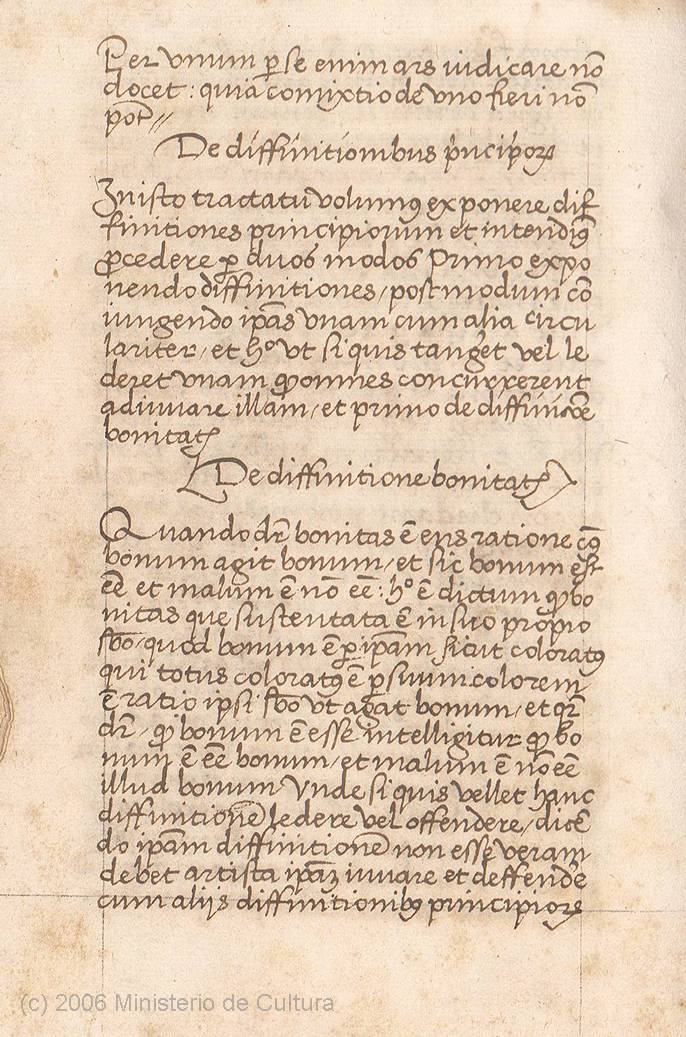 Per vnum ꝑ se enim ars iudicare nō
docet : quia comixtio de vno fieri nō
pōt //
De diffinitionibus prīcipioꝝ
In isto tractatu volumꝰ exponere dif
finitiones principiorum et intendimꝰ
ꝓcedere ꝑ duos modos Primo expo
nendo diffinitiones / postmodum cō
iungendo ip̄as vnam cum alia circu
lariter / et hº vt si quis tang̃et vel le
deret vnam ꝙ omnes concurrerent
adiuuare illam / et primo de diffinit̄õe
bonitatꝭ
De diffinitione bonitatꝭ
Quando dr̄ bonitas ē ens ratione cꝰ
bonum agit bonum / et sic bonum est
eē et malum ē nō eē : hº ē dictum ꝙ bo
nitas que sustentata ē in suo proprio
sb̄o / quod bonum ē ꝑ ip̄am sicut coloratꝰ
qui totus coloratꝰ ē ꝑ suum colorem /
ē ratio ipsi sb̄o vt agat bonum / et qr̄
dr̄ / ꝙ bonum ē esse intelligitur ꝙ bo
num ē eē bonum / et malum ē nō eē
illud bonum Vnde si quis vellet hanc
diffinitionē ledere vel offendere / dicē
do ip̄am diffinitionē non esse veram
debet artista ip̄aꝫ iuuare et deffende
cum alijs diffinitionibꝰ principioꝝ
(c) 2006 Ministerio de Cultura